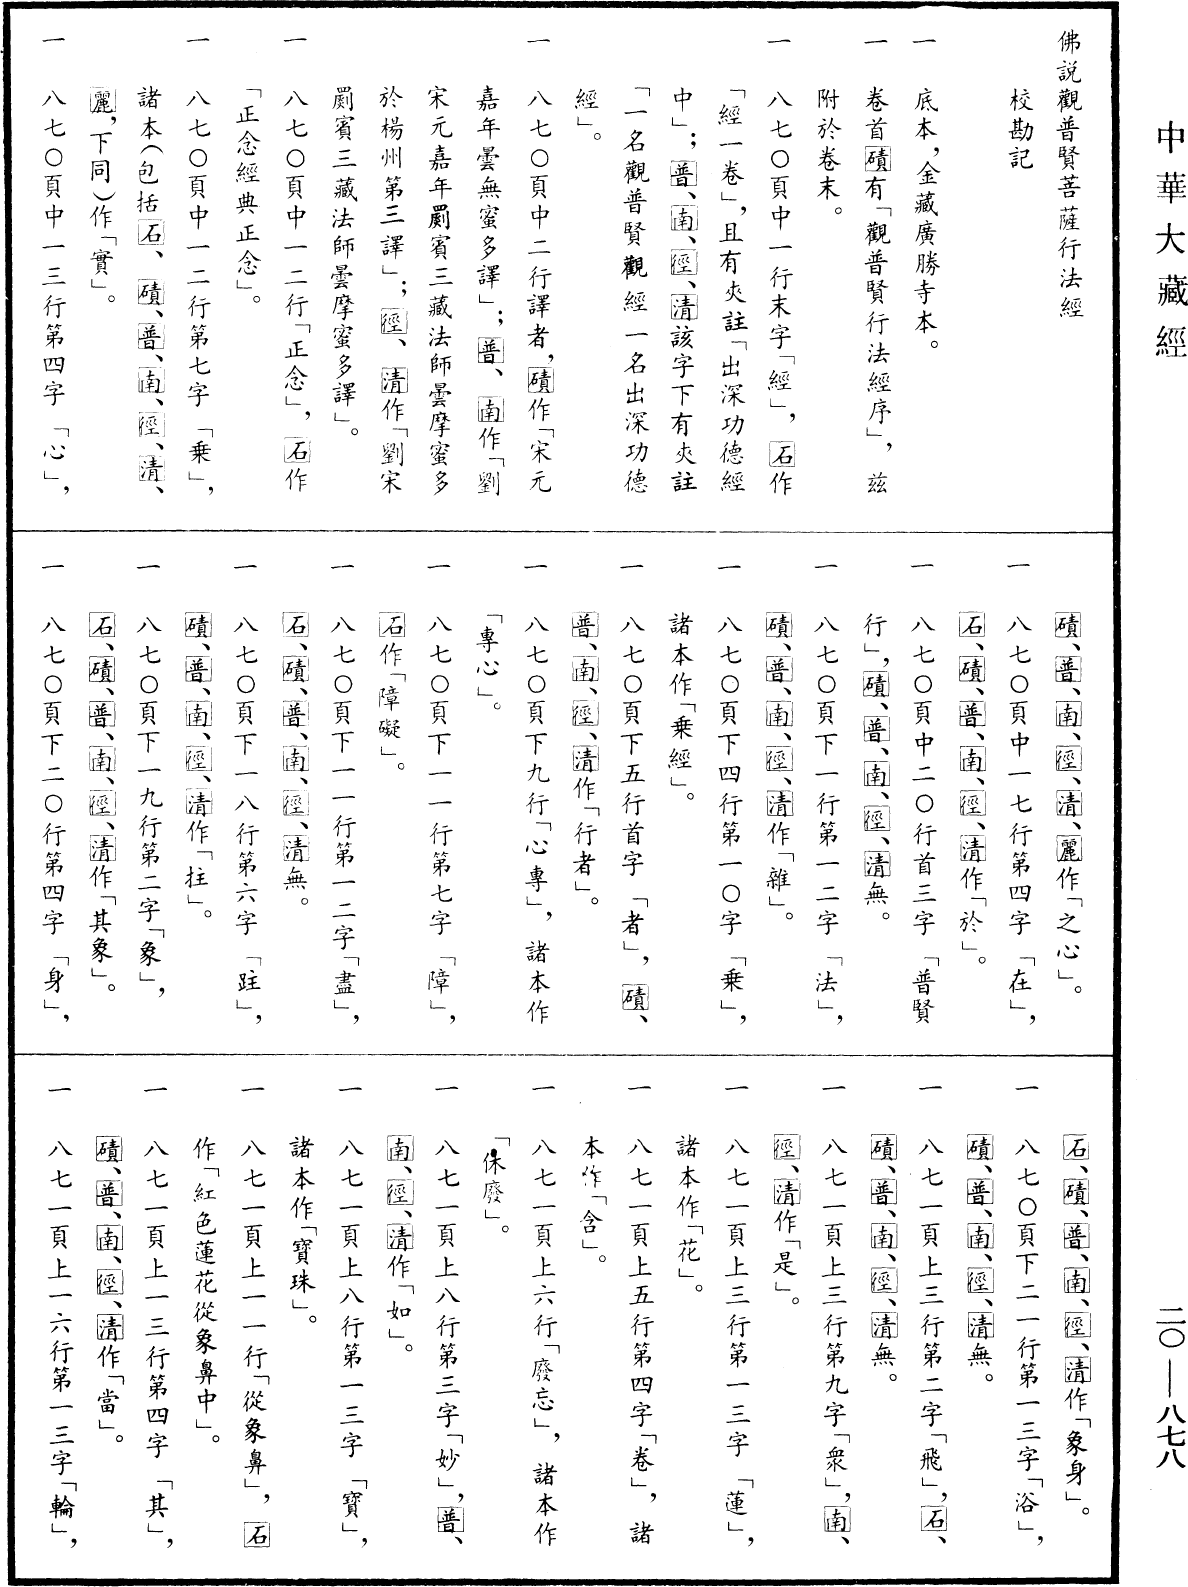 中華大藏經
佛說觀普賢菩薩行法經
校勘記
一 底本，金藏廣勝寺本。
一 卷首磧有「觀普賢行法經序」，茲
附於卷末。
一 八七〇頁中一行末字「經」，石作
「經一卷」，且有夾註「出深功德經
中」；普、南、徑、清該字下有夾註
「一名觀普賢觀經一名出深功德
經」。
一 八七〇頁中二行譯者，磧作「宋元
嘉年曇無蜜多譯」；普、南作「劉
宋元嘉年罽賓三藏法師曇摩蜜多
於楊州第三譯」；徑、清作「劉宋
罽賓三藏法師曇摩蜜多譯」。
一 八七〇頁中一二行「正念」，石作
「正念經典正念」。
一 八七〇頁中一二行第七字「乗」，
諸本（包括石、磧、普、南、徑、清、
麗，下同）作「實」。
一 八七〇頁中一三行第四字「心」，
磧、普、南、徑、清、麗作「之心」。
一 八七〇頁中一七行第四字「在」，
石、磧、普、南、徑、清作「於」。
一 八七〇頁中二〇行首三字「普賢
行」，磧、普、南、徑、清無。
一 八七〇頁下一行第一二字「法」，
磧、普、南、徑、清作「雜」。
一 八七〇頁下四行第一〇字「乗」，
諸本作「乗經」。
一 八七〇頁下五行首字「者」，磧、
普、南、徑、清作「行者」。
一 八七〇頁下九行「心專」，諸本作
「專心」。
一 八七〇頁下一一行第七字「障」，
石作「障礙」。
一 八七〇頁下一一行第一二字「盡」，
石、磧、普、南、徑、清無。
一 八七〇頁下一八行第六字「跓」，
磧、普、南、徑、清作「拄」。
一 八七〇頁下一九行第二字「象」，
石、磧、普、南、徑、清作「其象」。
一 八七〇頁下二〇行第四字「身」，
石、磧、普、南、徑、清作「象身」。
一 八七〇頁下二一行第一三字「浴」，
磧、普、南、徑、清無。
一 八七一頁上三行第二字「飛」，石、
磧、普、南、徑、清無。
一 八七一頁上三行第九字「衆」，南、
徑、清作「是」。
一 八七一頁上三行第一三字「蓮」，
諸本作「花」。
一 八七一頁上五行第四字「卷」，諸
本作「含」。
一 八七一頁上六行「廢忘」，諸本作
「休廢」。
一 八七一頁上八行第三字「妙」，普、
南、徑、清作「如」。
一 八七一頁上八行第一三字「寶」，
諸本作「寶珠」。
一 八七一頁上一一行「從象鼻」，石
作「紅色蓮花從象鼻中」。
一 八七一頁上一三行第四字「其」，
磧、普、南、徑、清作「當」。
一 八七一頁上一六行第一三字「輪」，
二〇—八七八